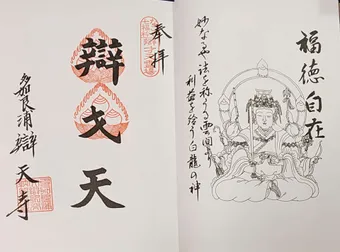 福徳自在
妙なるや法を称うる雲間より
利益を給う白龍の神
奉拝
辯才天
多家良浦辯天寺